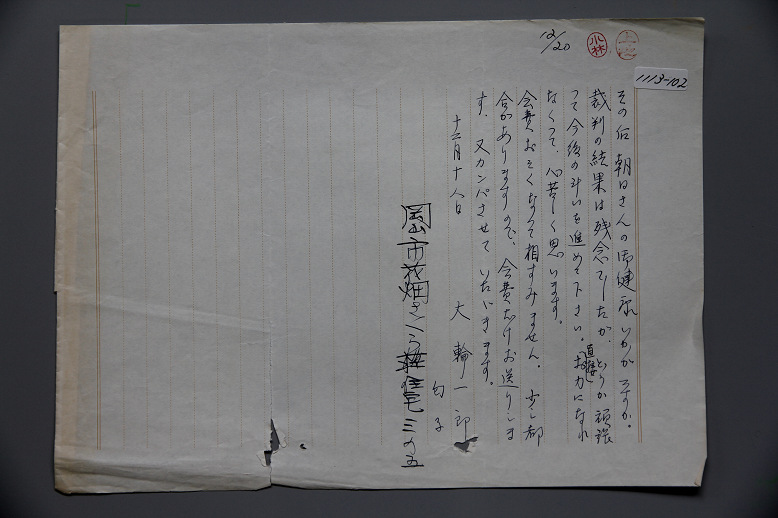 12/20
小林
1113-102
その后朝日さんの御健康いかがですか。
裁判の結果は残念でしたが、どうか頑張
って今後の斗いを進めて下さい。直接お力になれ
なくって、心苦しく思います。
会費おそくなって相すみません。少し都
合がありますので、会費だけお送りしま
す。又カンパさせていただきます。
十二月十八日
大輪一郎
岡山市花畑さくら住宅三の五